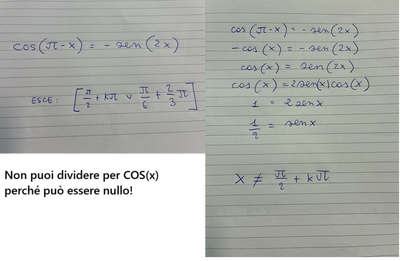 cos(π-x) = - sen(2x)
ESCE: [π/2 + kπ ∨ π/6 + 2/3 π]
Non puoi dividere per COS(x)
perché può essere nullo!
cos(π-x) = - sen(2x)
-cos(x) = - sen(2x)
cos(x) = sen(2x)
cos(x) = 2sen(x)cos(x)
1 = 2 senx
1/2 = senx
x ≠ π/2 + kπ